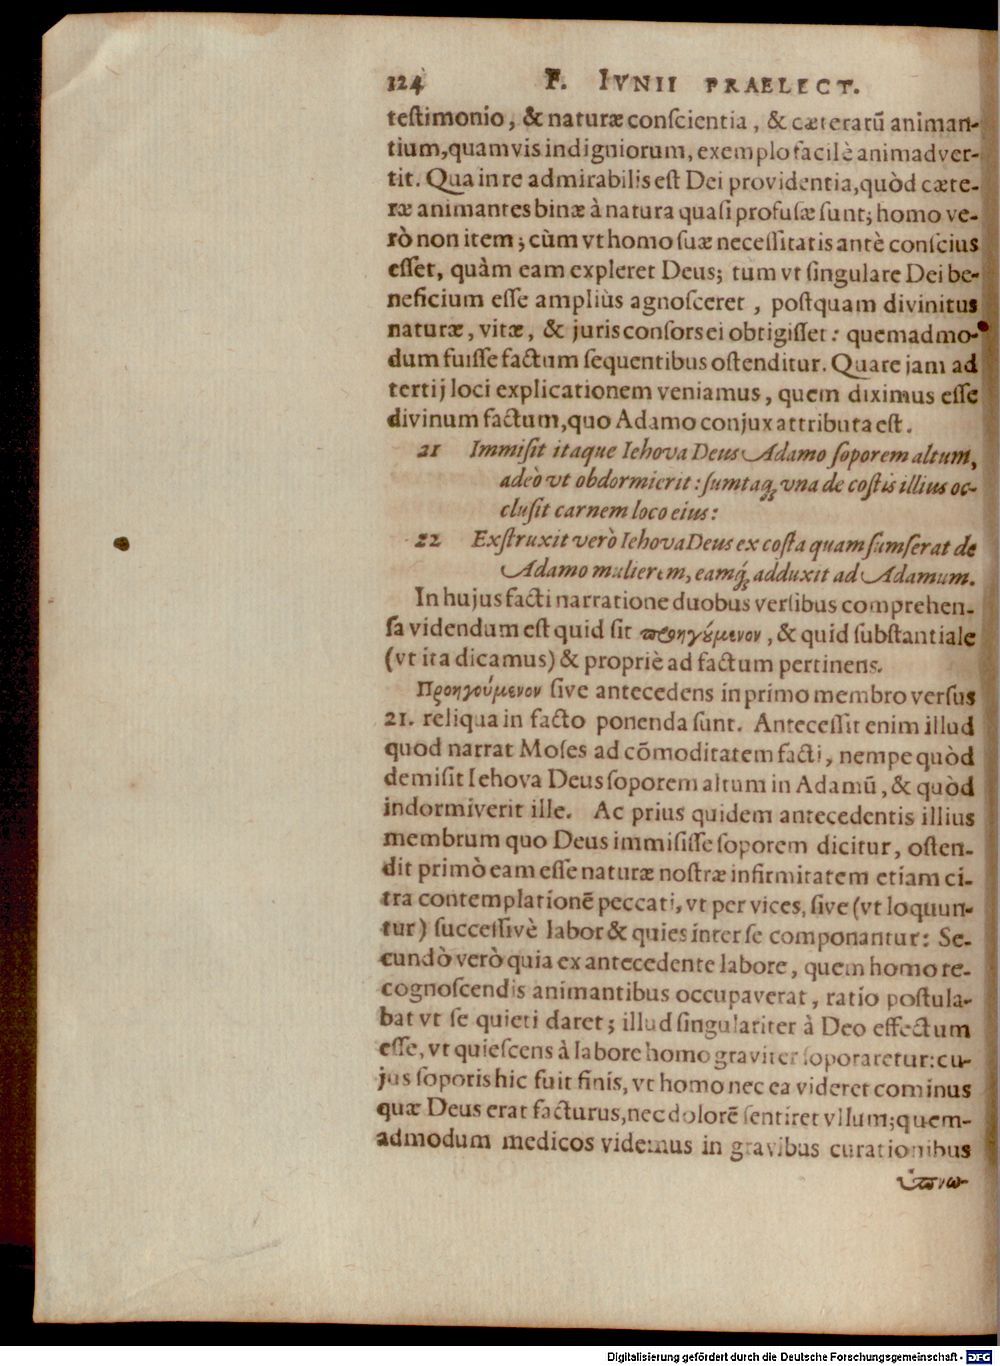 124 F. IVNII PRAELECT.
testimonio, & naturæ conscientia, & cæterarũ animan-
tium, quamvis indigniorum, exemplo facilè animadver-
tit. Qua in re admirabilis est Dei providentia, quòd cæte-
ræ animantes binæ à natura quasi profusæ sunt; homo ve-
rò non item; cùm vt homo suæ necessitatis antè conscius
esset, quàm eam expleret Deus; tum vt singulare Dei be-
neficium esse ampliùs agnosceret, postquam divinitus
naturæ, vitæ, & juris consors ei obtigisset: quemadmo-
dum fuisse factum sequentibus ostenditur. Quare jam ad
tertij loci explicationem veniamus, quem diximus esse
divinum factum, quo Adamo conjux attributa est.
21 Immisit itaque Iehova Deus Adamo soporem altum,
adeò vt obdormierit: sumtaq́; vna de costis illius oc-
clusit carnem loco eius:
22 Exstruxit verò Iehova Deus ex costa quam sumserat de
Adamo mulierem, eamq́; adduxit ad Adamum.
In hujus facti narratione duobus versibus comprehen-
sa videndum est quid sit προηγούμενον, & quid substantiale
(vt ita dicamus) & propriè ad factum pertinens.
Προηγούμενον sive antecedens in primo membro versus
21. reliqua in facto ponenda sunt. Antecessit enim illud
quod narrat Moses ad cõmoditatem facti, nempe quòd
demisit Iehova Deus soporem altum in Adamũ, & quòd
indormiverit ille. Ac prius quidem antecedentis illius
membrum quo Deus immisisse soporem dicitur, osten-
dit primò eam esse naturæ nostræ infirmitatem etiam ci-
tra contemplationẽ peccati, vt per vices, sive (vt loquun-
tur) successivè labor & quies inter se componantur: Se-
cundò verò quia ex antecedente labore, quem homo re-
cognoscendis animantibus occupaverat, ratio postula-
bat vt se quieti daret; illud singulariter à Deo effectum
esse, vt quiescens à labore homo graviter soporaretur: cu-
jus soporis hic fuit finis, vt homo nec ea videret cominus
quæ Deus erat facturus, nec dolorẽ sentiret vllum; quem-
admodum medicos videmus in gravibus curationibus
ὑπνω-
Digitalisierung gefördert durch die Deutsche Forschungsgemeinschaft - DFG